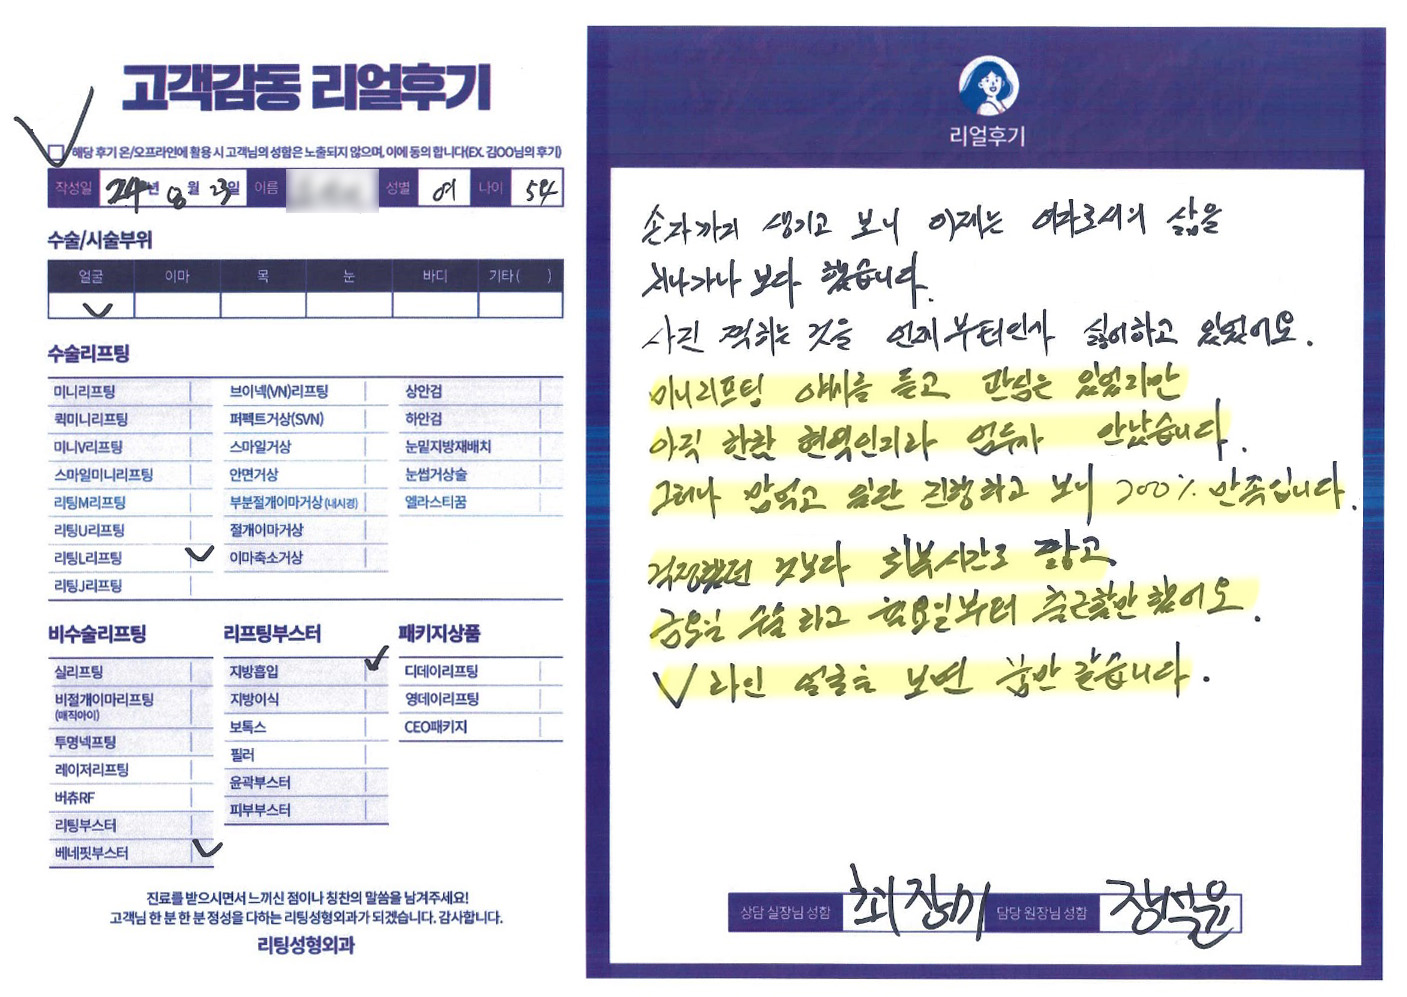 고객감동 리얼후기
해당 후기 온/오프라인에 활용 시 고객님의 성함은 노출되지 않으며, 이에 동의 합니다(EX. 김OO님의 후기)
작성일 24년 8월 23일 이름 성별 여 나이 54
수술/시술부위
얼굴 이마 목 눈 바디 기타( )
수술리프팅
미니리프팅 브이넥(VN)리프팅 상안검
퀵미니리프팅 퍼펙트거상(SVN) 하안검
미니V리프팅 스마일거상 눈밑지방재배치
스마일미니리프팅 안면거상 눈썹거상술
리팅M리프팅 부분절개이마거상 (내시경) 엘라스티꿈
리팅U리프팅 절개이마거상
리팅L리프팅 이마축소거상
리팅J리프팅
비수술리프팅
실리프팅
비절개이마리프팅
(매직아이)
투명넥프팅
레이저리프팅
버츄RF
리팅부스터
베네핏부스터
리프팅부스터
지방흡입
지방이식
보톡스
필러
윤곽부스터
피부부스터
패키지상품
디데이리프팅
영데이리프팅
CEO패키지
진료를 받으시면서 느끼신 점이나 칭찬의 말씀을 남겨주세요!
고객님 한 분 한 분 정성을 다하는 리팅성형외과가 되겠습니다. 감사합니다.
리팅성형외과
리얼후기
손자까지 생기고 보니 이제는 여자로서의 삶을
지나가나 보다 했습니다.
사진 찍히는 것을 언제부터인가 싫어하고 있었어요.
미니리프팅 얘기를 듣고 관심은 있었지만
아직 한창 현역인지라 엄두가 안났습니다.
그러나 맘먹고 일단 진행하고 보니 200% 만족입니다.
걱정했던 것보다 회복시간도 짧고
금요일 수술 하고 월요일부터 출근할만 했어요.
V라인 얼굴을 보면 꿈만 같습니다.
상담 실장님 성함 최장미 담당 원장님 성함 장석윤